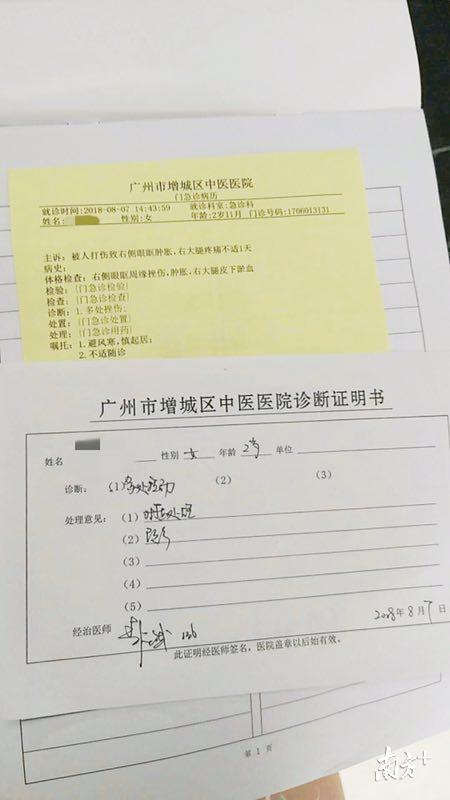 广州市增城区中医医院
门急诊病历
就诊时间:2018-08-07 14:43:59 就诊科室:急诊科
姓名: 性别:女 年龄:2岁11月 门诊号码:1706013131
主诉: 被人打伤致右侧眼眶肿胀,右大腿疼痛不适1天
病史:
体格检查: 右侧眼眶周缘挫伤,肿胀,右大腿皮下淤血
检验: [门急诊检验]
检查: [门急诊检查]
诊断: 1.多处挫伤;
处置: [门急诊处置]
处理: [门急诊用药]
嘱托: 1.避风寒,慎起居;
2.不适随诊
广州市增城区中医医院诊断证明书
姓名 性别 女 年龄 2岁 单位
诊断: (1) 多处挫伤 (2) (3)
处理意见: (1) 对症处理
(2) 随诊
(3)
(4)
(5)
经治医师 2018年8月7日
此证明经医师签名,医院盖章以后始有效。
第 1 页
南方+